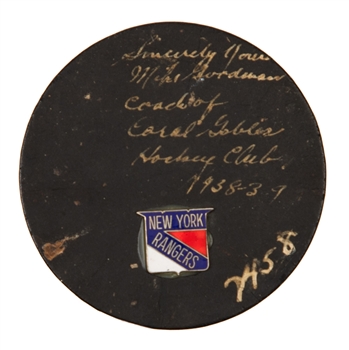 Sincerely Yours
Mike Goodman
Coach of
Coral Gables
Hockey Club
1938-39
NEW YORK
RANGERS